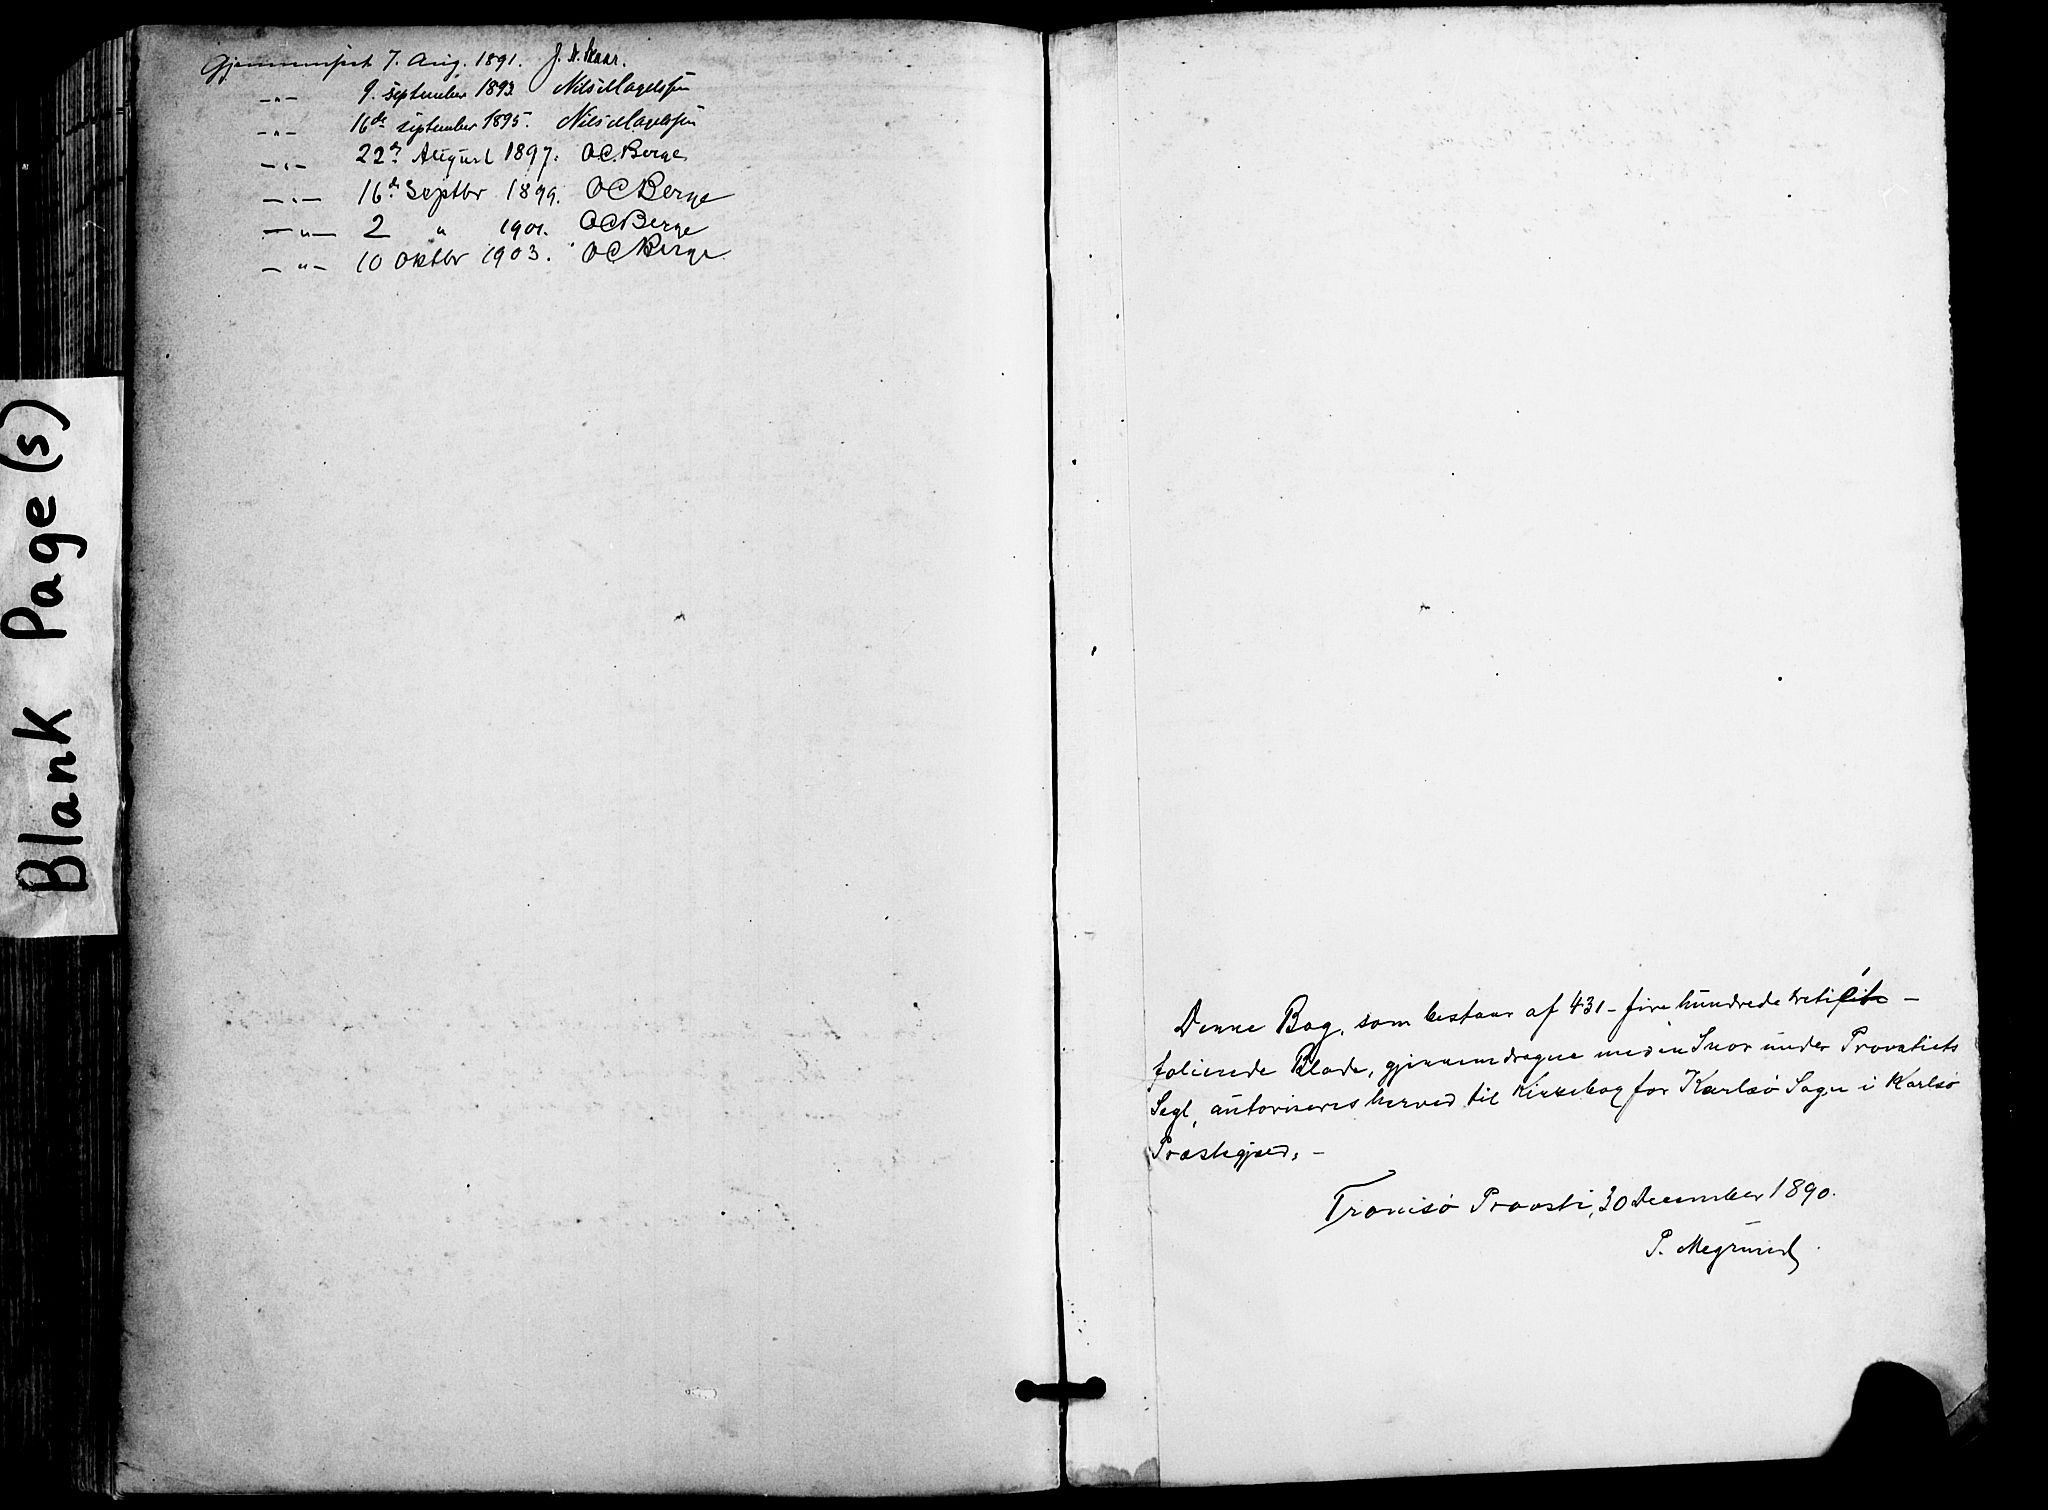 Gjennemseet 7. Aug. 1891. J. N. Skaar.
—"— 9. september 1893 Nils Magelssen
—"— 16de september 1895. Nils Magelssen
—"— 22de August 1897. OC. Berge
—"— 16de Septbr 1899. OC Berge
—"— 2 " 1901. OC Berge
—"— 10 Oktbr 1903. OC Berge
Blank Page(s)
Denne Bog, som bestaar af 431 – fire hundrede treti een –
folierede Blade, gjennemdragne med en Snor under Provstiets
Segl, autoriseres herved til Kirkebog for Karlsø Sogn i Karlsø
Præstegjeld. –
Tromsø Provsti, 30 December 1890.
P.